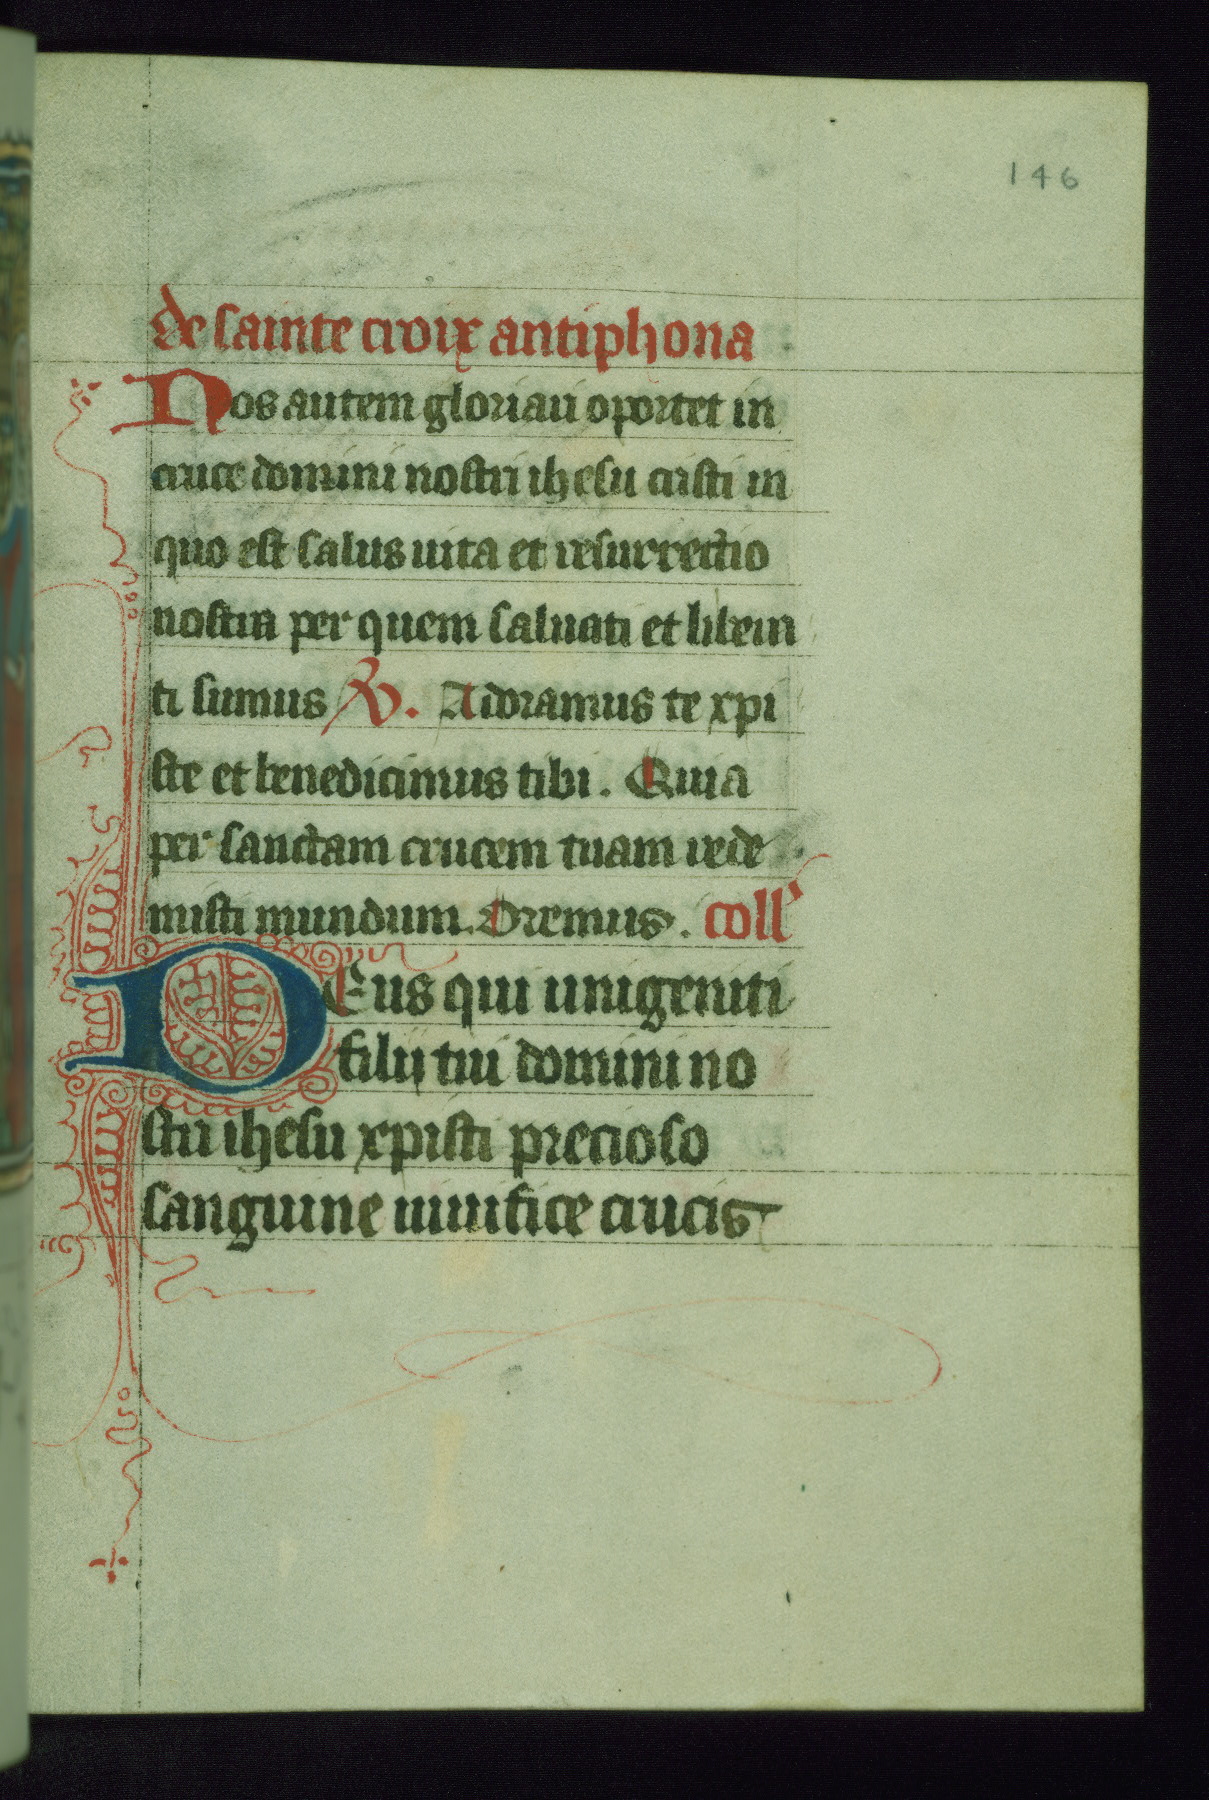 146
de sainte croix antiphona
Nos autem gloriari oportet in
cruce domini nostri ihesu cristi in
quo est salus uita et resurrectio
nostra per quem saluati et libera
ti sumus ℣. Adoramus te xpi
ste et benedicimus tibi. Quia
per sanctam crucem tuam rede
misti mundum. Oremus. coll'
Deus qui unigeniti
filij tui domini no
stri ihesu xpisti precioso
sanguine uiuifice crucis